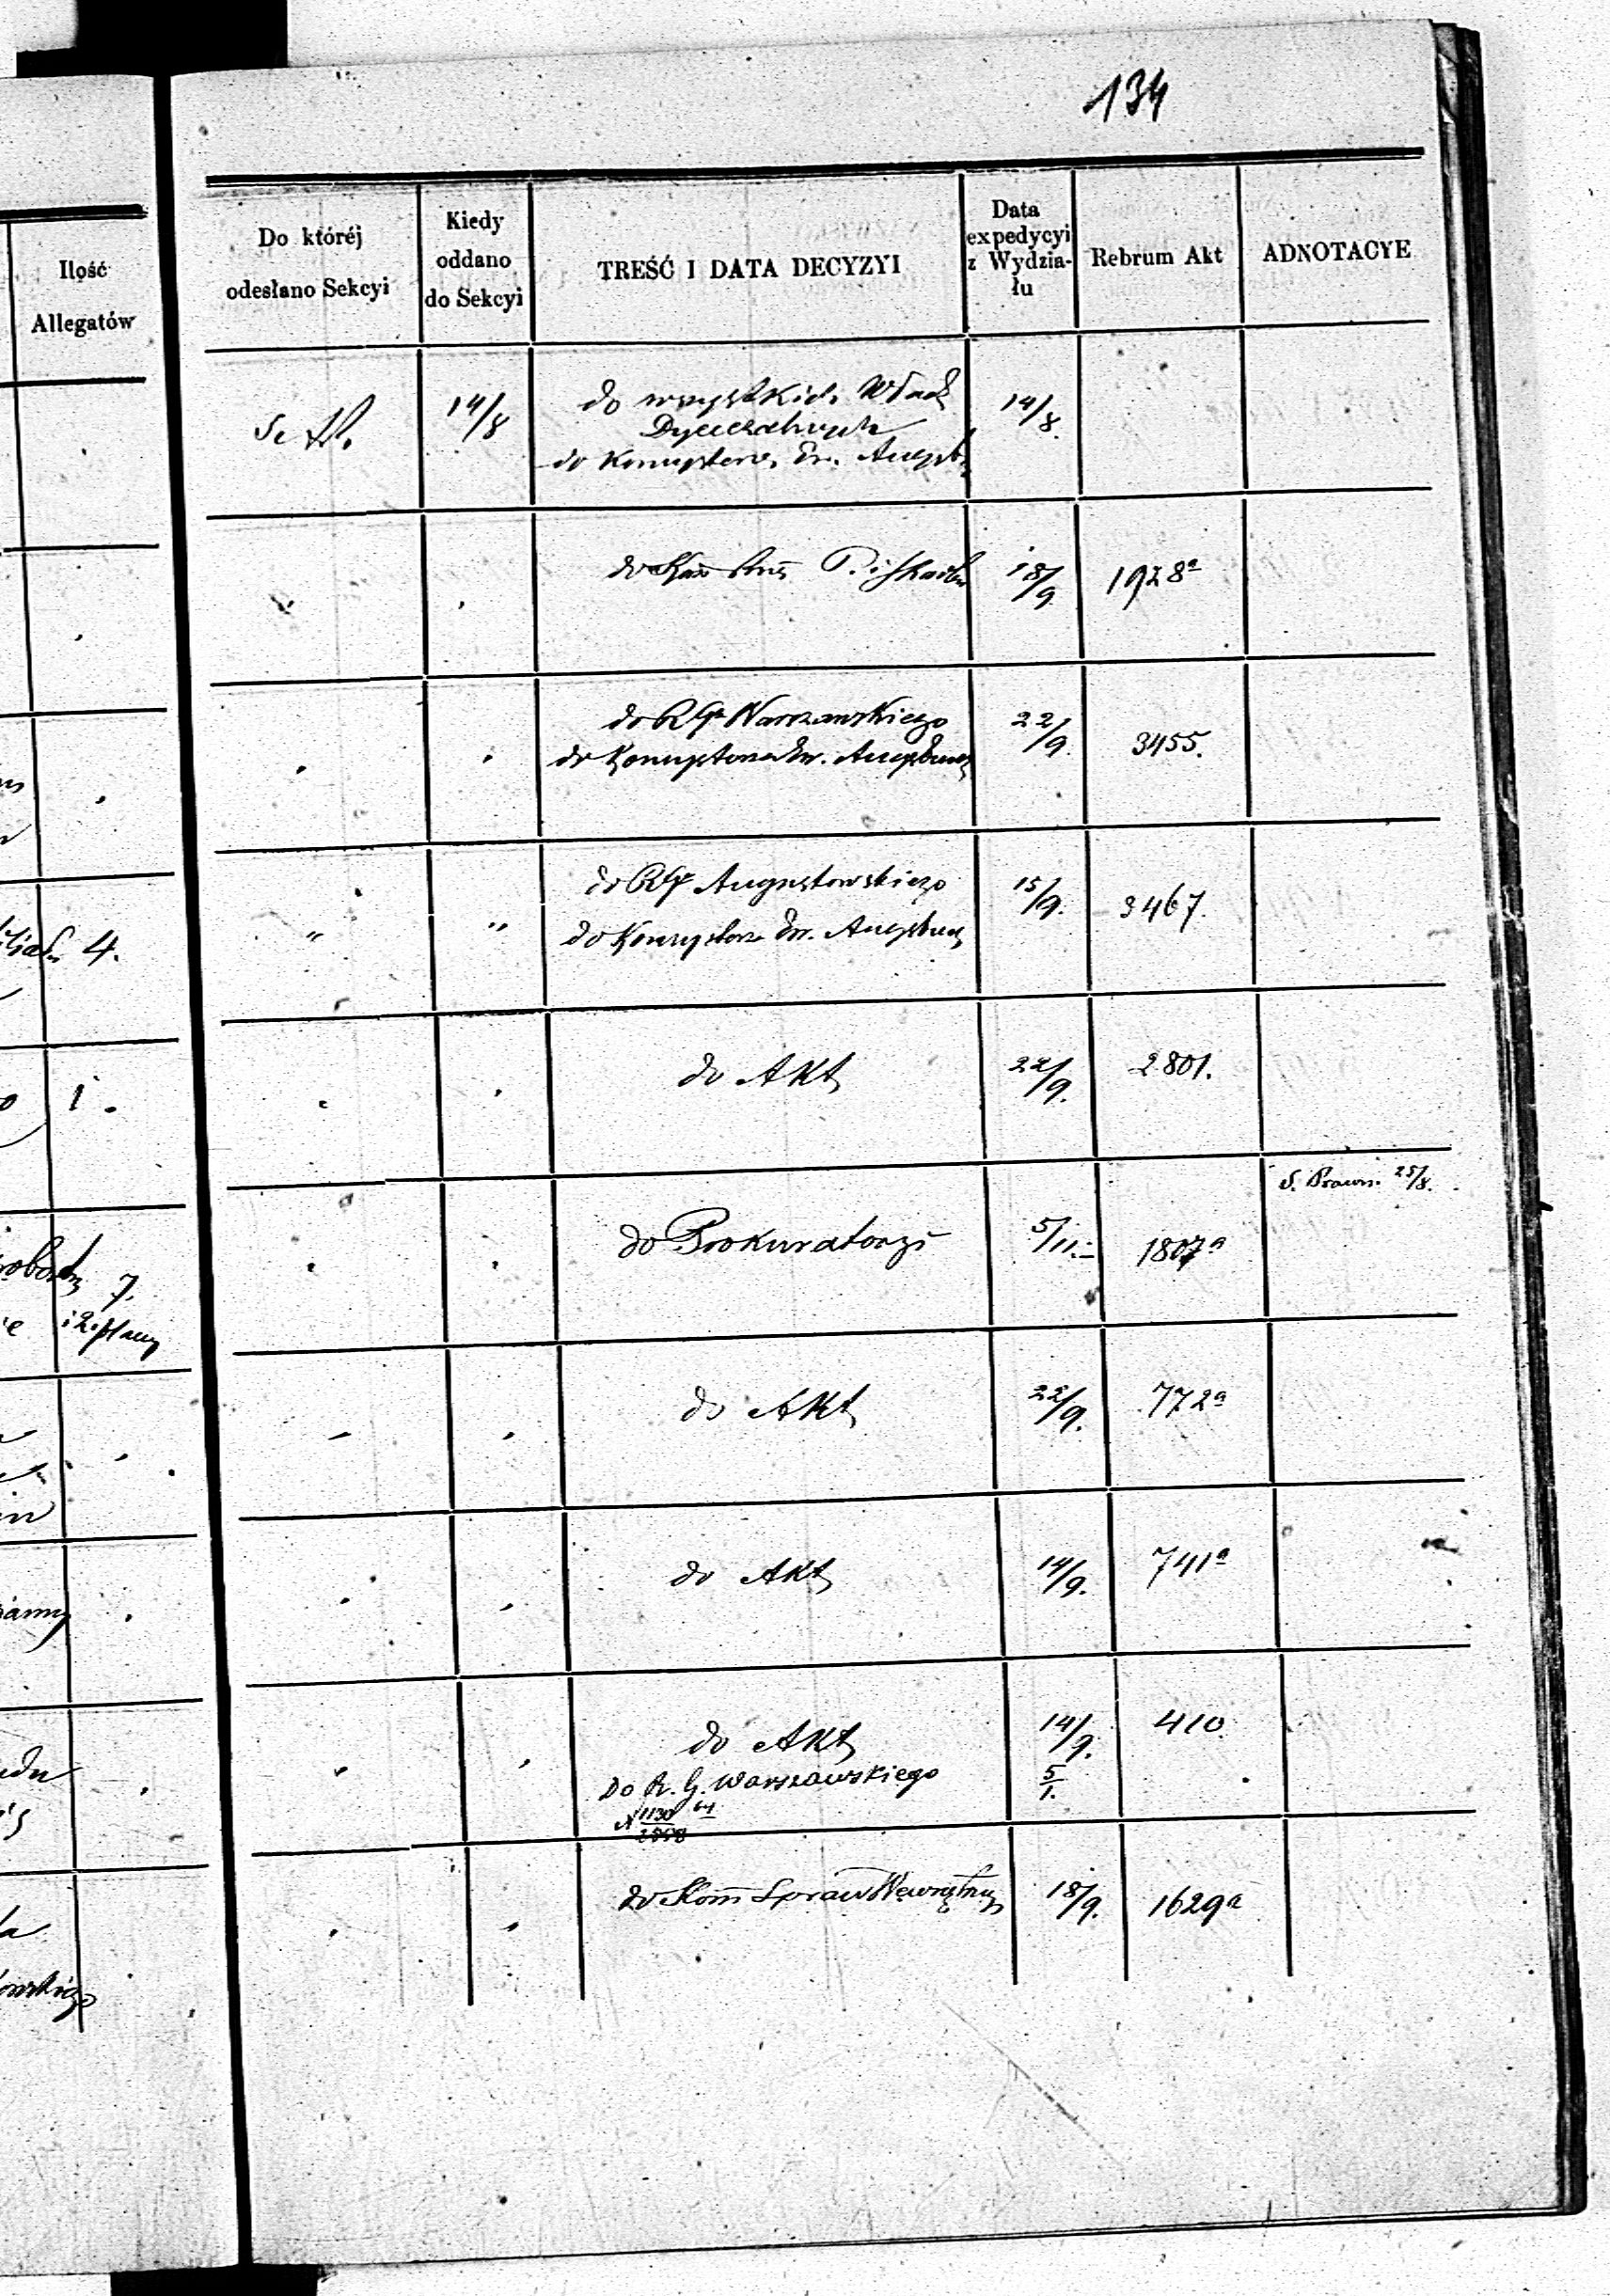 134
Ilość
Allegatów
Do któréj
odesłano Sekcyi
Kiedy
oddano
do Sekcyi
TREŚĆ I DATA DECYZYI
Data
expedycyi
z Wydzia-
łu
Rebrum Akt
ADNOTACYE
14/8
do wszystkich Władz
Dyecezalnych
do Konsystorza Ew. Augsb.
14/8.
do P. i Skarbu
18/9.
1928ª
do RGo Warszawskiego
do Konsystorza Ew. Augsburg
22/9.
3455.
4.
" "
do RGo Augustowskiego
do Konsystorza Ew. Augsburg
15/9.
3467.
1.
do Akt
22/9.
2801.
7.
i 2. plany
do Prokuratoryi
5/11.
1807ª
S. Prawn. 25/8.
do Akt
22/9.
772ª
do Akt
14/9.
741ª
do Akt
14/9.
410
Do R. G. Warszawskiego
5/1.
do Kom Spraw Wewnętrzn
18/9.
1629ª